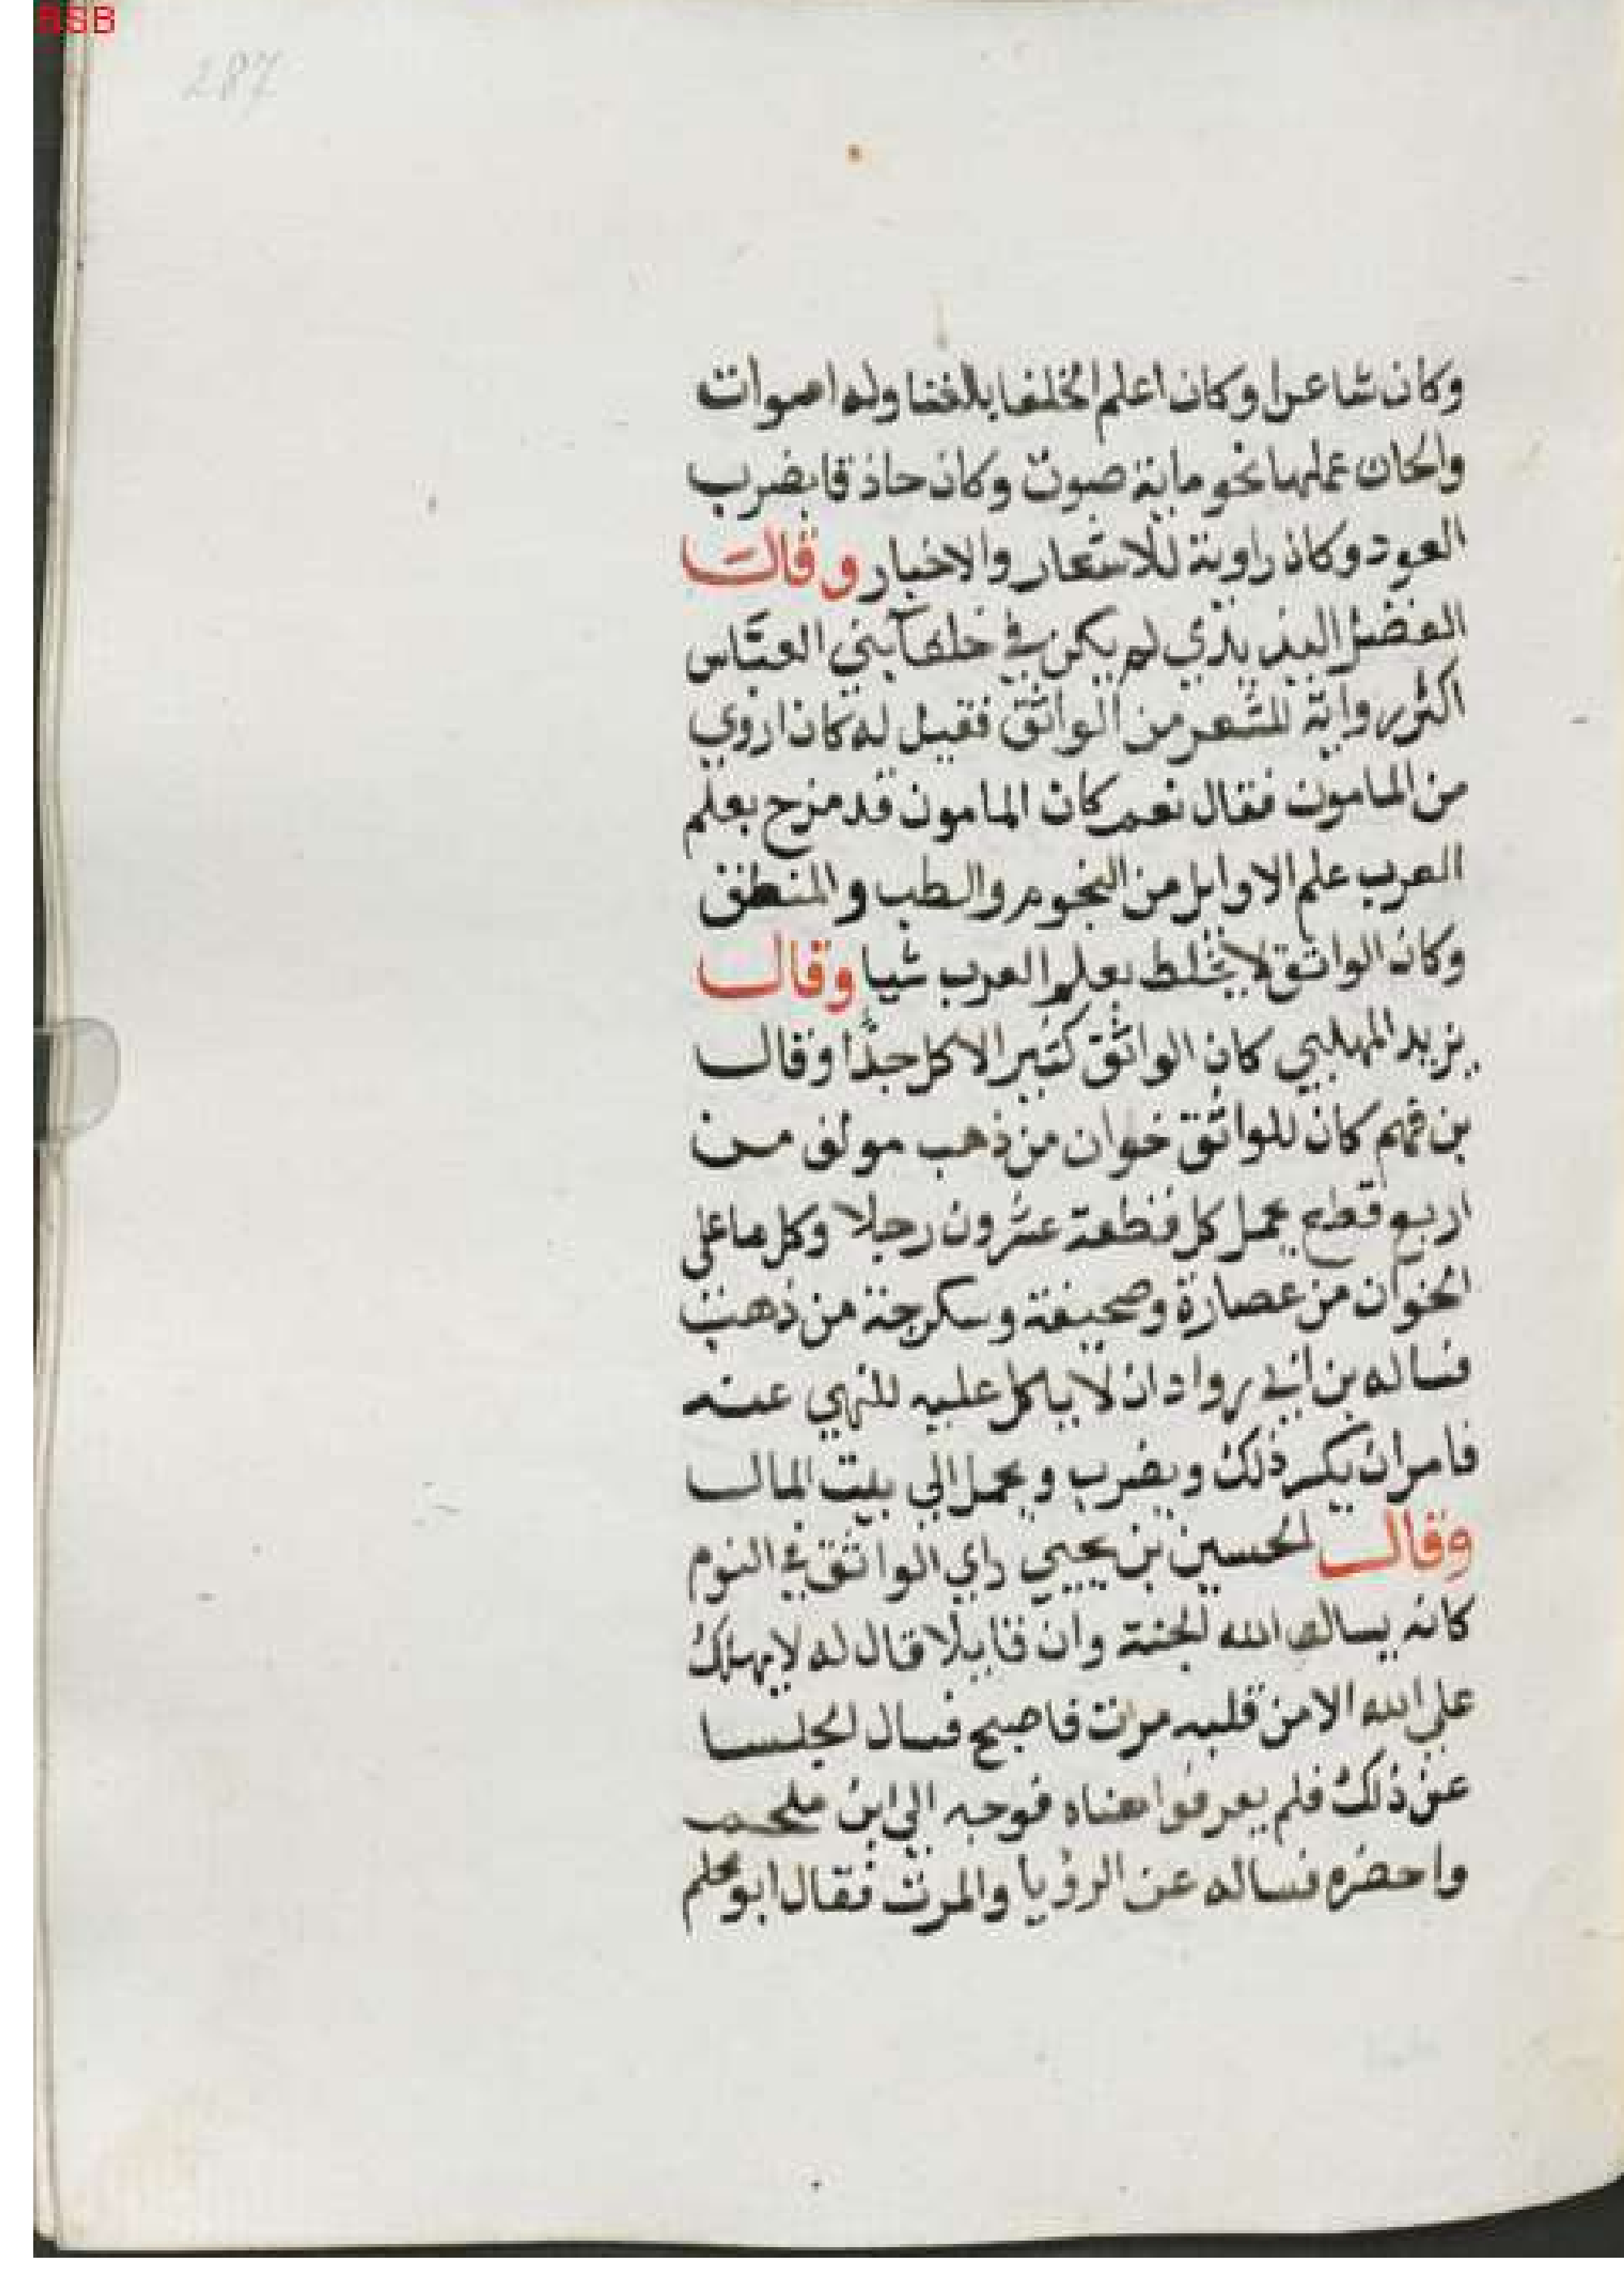 BSB
287
وكان شاعرا وكان اعلم الخلفا بالغنا وله اصوات
والحان عملها نحو ماية صوت وكان حاذقا بضرب
العود وكان راوية للاشعار والاخبار وقال
الفضل اليذيذي لم يكن في خلفآ بني العبّاس
اكثر رواية للشعر من الواثق فقيل له كان اروي
من المامون فقال نعم كان المامون قد مزح بعلم
العرب علم الاوايل من النجوم والطب والمنطق
وكان الواثق لا يخلط بعلم العرب شيا وقال
يزيد المهلبي كان الواثق كثير الاكل جدًّا وقال
بن فهم كان للواثق خوان من ذهب مولف من
اربع قطع يحمل كل قطعة عشرون رجلا وكل ما على
الخوان من عصارة وصحيفة وسكرجة من ذهب
فساله بن ابي رواد ان لا ياكل عليه للنهي عنه
فامر ان يكسر ذلك ويضرب ويحمل الي بيت المال
وقال الحسين بن يحيي راي الواثق في النوم
كانه يسال الله لجنة وان قايلا قال له لا يهلك
علي الله الا من قلبه مرت فاصبح فسال الجلسا
عن ذلك فلم يعرفوا معناه فوجه الي ابن ملحم
واحضره فساله عن الرؤيا والمرت فقال ابو محلم